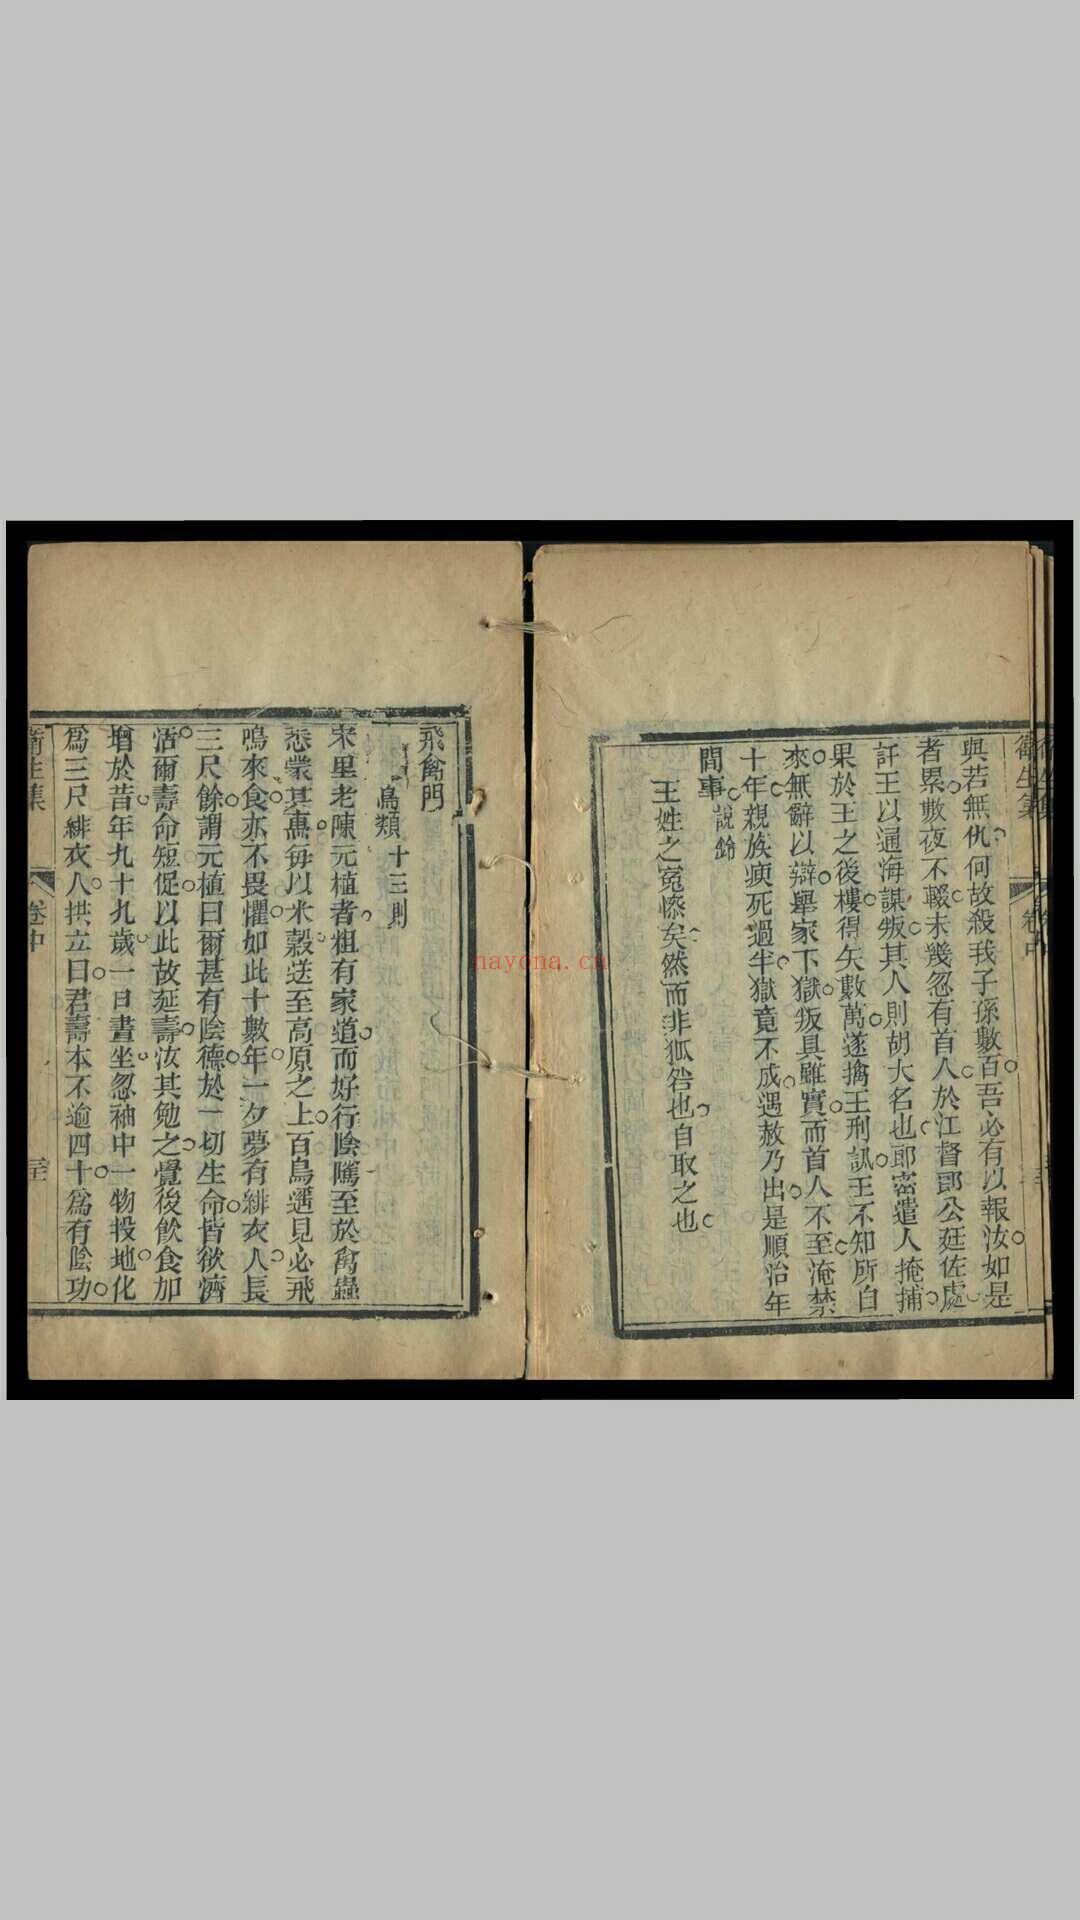 衛生集
卷中
與若無仇何故殺我子孫數百吾必有以報汝如是
者累數夜不輟未幾忽有首人於江督郎公廷佐處
訐王以通海謀叛其人則胡大名也郎密遣人掩捕
果於王之後樓得矢數萬遂擒王刑訊王不知所自
來無辭以辯舉家下獄叛具雖實而首人不至淹禁
十年親族瘐死過半獄竟不成遇赦乃出是順治年
間事 說鈴
王姓之冤慘矣然而非狐咎也自取之也
飛禽門
鳥類 十三則
宋里老陳元植者粗有家道而好行陰騭至於禽蟲
悉蒙其惠每以米穀送至高原之上百鳥遥見必飛
鳴來食亦不畏懼如此十數年一夕夢有緋衣人長
三尺餘謂元植曰爾甚有陰德於一切生命皆欲濟
活爾壽命短促以此故延壽汝其勉之覺後飲食加
增於昔年九十九歲一日晝坐忽袖中一物投地化
爲三尺緋衣人拱立曰君壽本不逾四十爲有陰功
衛生集
卷中
nayona.cn